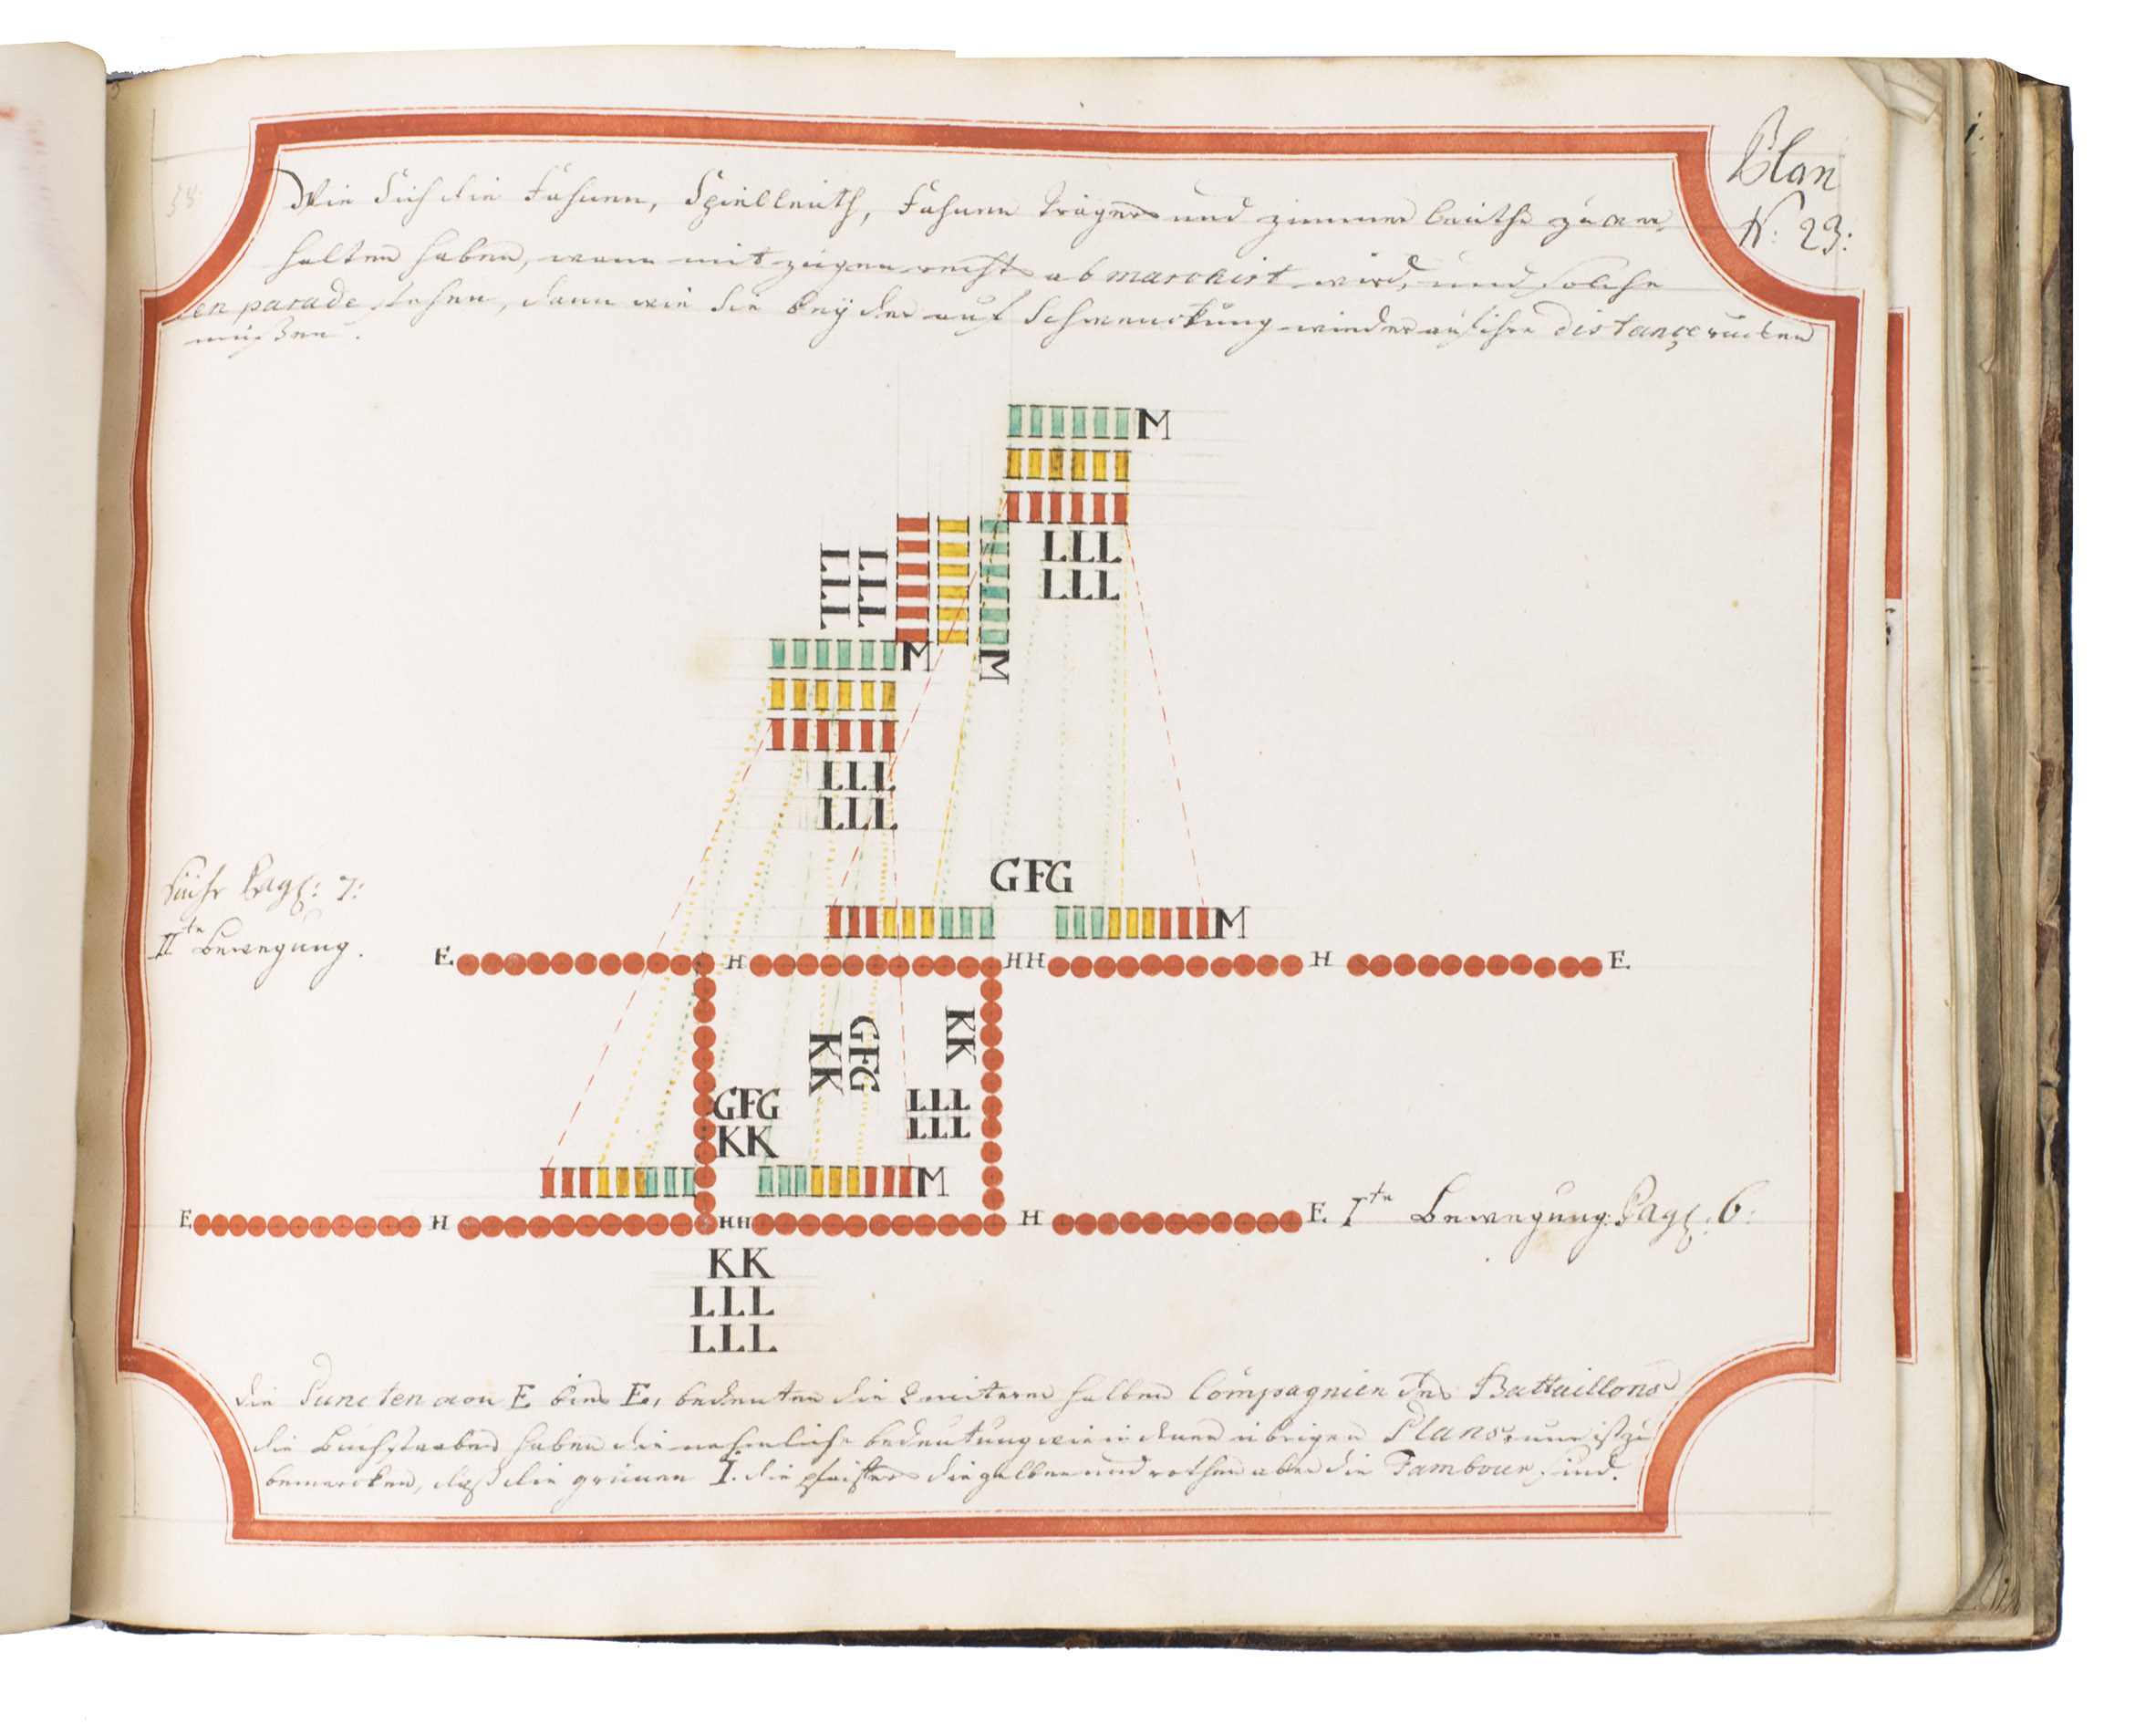 Plan
N: 23:
38:
Wie sich die Fahnen, Spielleuth, Fahnen Träger und Zimmer leuthe zu ver,
halten haben, wann mit zügen rechts ab marchirt wird, und solche
en parade stehen, dann wie sie beÿ der auf Schwenckung wieder auf ihre distance rucken
müßen.
M
LLL
LLL
LLL
LLL
M
M
LLL
LLL
GFG
M
Siehe Pag: 7:
IIte Bewegung.
E H HH H E
KK
GFG
KK
GFG
KK
LLL
LLL
M
E H HH H E Ite Bewegung Pag: 6:
KK
LLL
LLL
Die Puncten von E bis E, bedeuten die halben Compagnien des Battaillons
die Buchstaben haben die nehmliche bedeutung wie in denen übrigen Plans, nur ist zu
bemercken, daß die grünen I. die pfeiffer die gelben und rothen aber die Tambour sind.